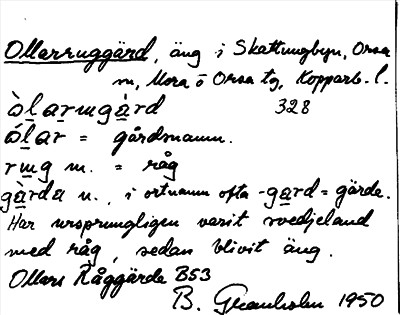 Ollarruggärd, äng i Skattungbyn, Orsa
m, Mora o Orsa tg, Kopparb. l.
òlarmgàrd 328
ólar = gårdsnamn.
rɯg m. = råg
gàrda n., i ortnamn ofta -gard = gärde.
Har ursprungligen varit svedjeland
med råg, sedan blivit äng.
Ollars Råggärde B53
B. Granholm 1950